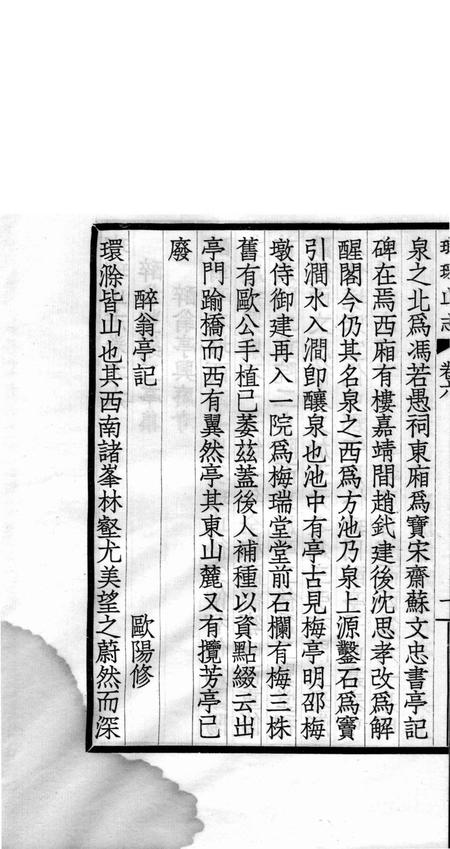 琅琊山志 卷六
泉之北爲馮若愚祠東廂爲寶宋齋蘇文忠書亭記
碑在焉西廂有樓嘉靖間趙釴建後沈思孝改爲解
醒閣今仍其名泉之西爲方池乃泉上源鑿石爲竇
引澗水入澗卽釀泉也池中有亭古見梅亭明邵梅
墩侍御建再入一院爲梅瑞堂堂前石欄有梅三株
舊有歐公手植已萎茲蓋後人補種以資點綴云出
亭門踰橋而西有翼然亭其東山麓又有攬芳亭已
廢
醉翁亭記 歐陽修
環滁皆山也其西南諸峯林壑尤美望之蔚然而深